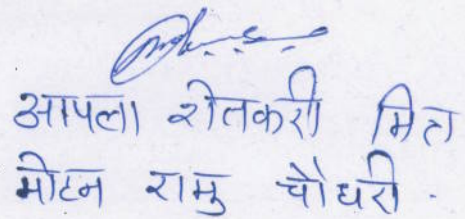 आपला शेतकरी मित्र
मोहन रामु चौधरी.